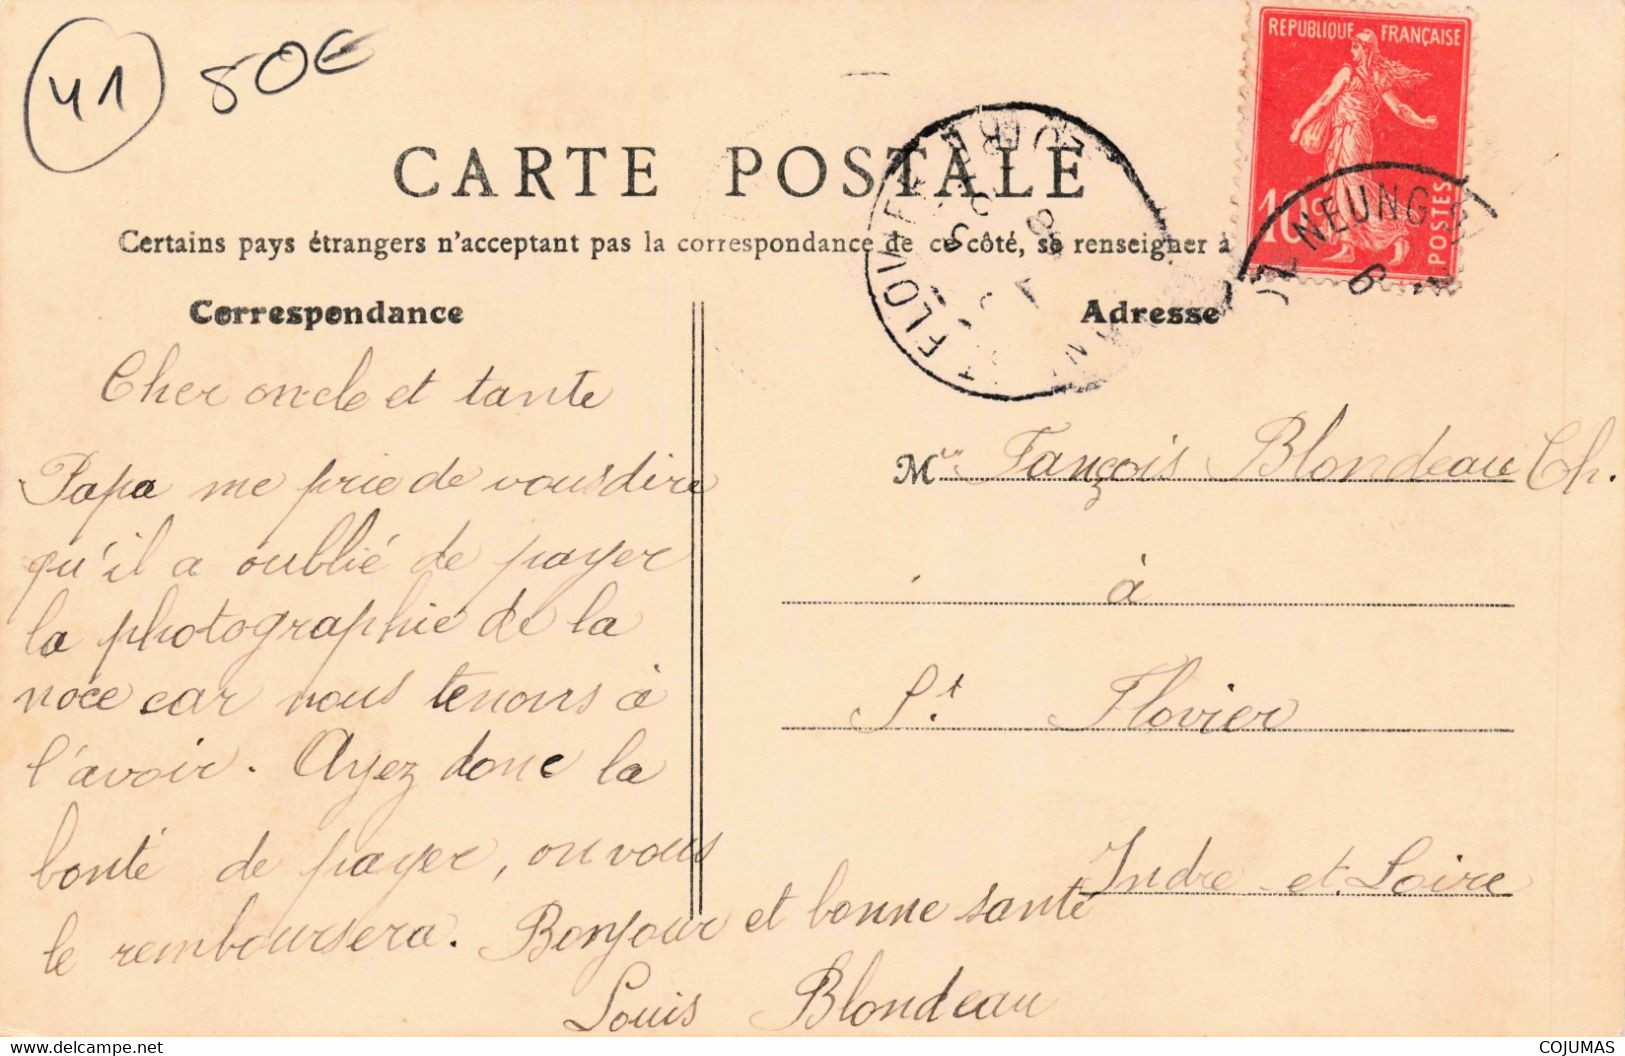 41
50€
REPUBLIQUE FRANÇAISE
10c
POSTES
NEUNG
6
CARTE POSTALE
Certains pays étrangers n'acceptent pas la correspondance de ce côté, se renseigner à
Correspondance
Adresse
Cher oncle et tante
Papa me prie de vous dire
qu'il a oublié de payer
la photographie de la
noce car nous tenons à
l'avoir. Ayez donc la
bonté de payer, on vous
le remboursera. Bonjour et bonne santé
Louis Blondeau
M Fançois Blondeau Ch.
à
St. Flovier
Indre et Loire
www.delcampe.net
COJUMAS